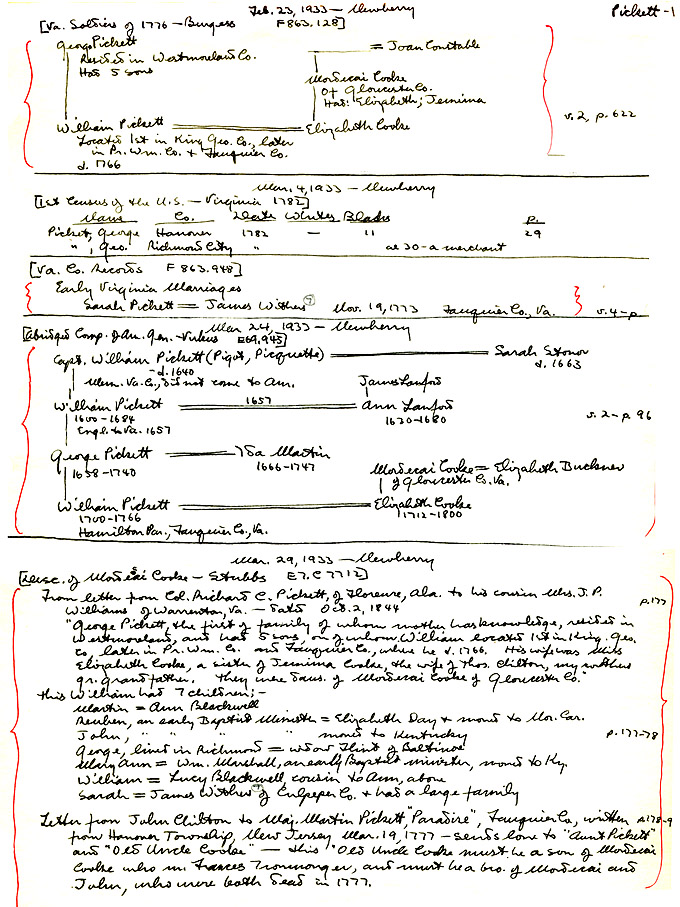 Feb. 23, 1933 — Newberry
Pickett - 1
[Va. Soldiers of 1776 - Burgess F863.128]
George Pickett = Joan Constable
Resided in Westmoreland Co.
Had 5 sons
Mordecai Cooke
Of Gloucester Co.
Had: Elizabeth; Jemima
v. 2, p. 622
William Pickett = Elizabeth Cooke
Located 1st in King Geo. Co., later
in Pr. Wm. Co. & Fauquier Co.
d. 1766
Mar. 4, 1933 — Newberry
[1st Census of the U.S. — Virginia 1782]
Name Co. Date Whites Blacks p.
Pickett, George Hanover 1782 — 11 29
" , Geo. Richmond City " ae 30 - a merchant
[Va. Co. Records F863.948]
Early Virginia Marriages
Sarah Pickett = James Withers (?) Nov. 19, 1773 Fauquier Co., Va. v. 4 - p
Mar 24, 1933 — Newberry
[Abridged Comp. of Am. Gen. - Virkus E69.945]
Capt. William Pickett (Pigot, Picquette) = Sarah Stonor
- d. 1640
d. 1663
Mem. Va. Co., did not come to Am.
James Lanford
William Pickett = 1657 = Ann Lanford
1600 - 1684
1620 - 1680
v. 2 - p. 96
Engl. to Va. 1657
George Pickett = Martin
1658 - 1740
1666 - 1747
Mordecai Cooke = Elizabeth Buckner
of Gloucester Co. Va.
William Pickett = Elizabeth Cooke
1700 - 1766
1712 - 1800
Hamilton Par., Fauquier Co., Va.
Mar. 29, 1933 — Newberry
[Desc. of Mordecai Cooke - Stubbs E7.C7712]
From letter from Col. Richard C. Pickett, of Florence, Ala. to his cousin Mrs. J. P.
Williams of Warrenton, Va. — dated Oct. 2, 1844
p. 177
"George Pickett, the first of family of whom mother has knowledge, resided in
Westmoreland, and had 5 sons, on of whom William located 1st in King. Geo.
Co., later in Pr. Wm. Co. and Fauquier Co., where he d. 1766. His wife was Miss
Elizabeth Cooke, a sister of Jemima Cooke, the wife of Thos. Chilton, my mothers
gr. grandfather. They were daus. of Mordecai Cooke of Gloucester Co."
This William had 7 children; -
Martin = Ann Blackwell
Reuben, an early Baptist Minister = Elizabeth Day & moved to Nor. Car.
John, " " " " moved to Kentucky
p. 177-78
George, lived in Richmond = widow Flint of Baltimore
Mary Ann = Wm. Marshall, an early Baptist minister, moved to Ky.
William = Lucy Blackwell, cousin to Ann, above
Sarah = James Withers (?) of Culpeper Co. & had a large family
Letter from John Chilton to Maj. Martin Pickett "Paradise", Fauquier Co, written p. 178-9
from Hanover Township, New Jersey Mar. 19, 1777 - sends love to "Aunt Pickett"
and "Old Uncle Cooke" — this "Old Uncle Cooke must be a son of Mordecai
Cooke who m. Frances Ironmonger, and must be a bro. of Mordecai and
John, who were both dead in 1777.